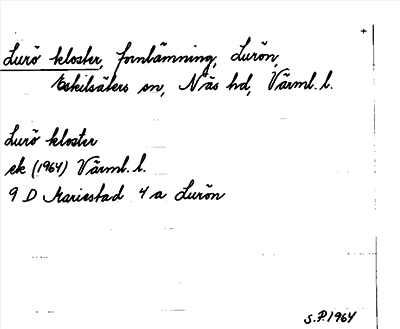 Lurö kloster, fornlämning, Lurön,
Eskilsäters sn, Näs hd, Värml. l.
Lurö kloster
ek (1964) Värml. l.
9 D Mariestad 4 a Lurön
S.P. 1964